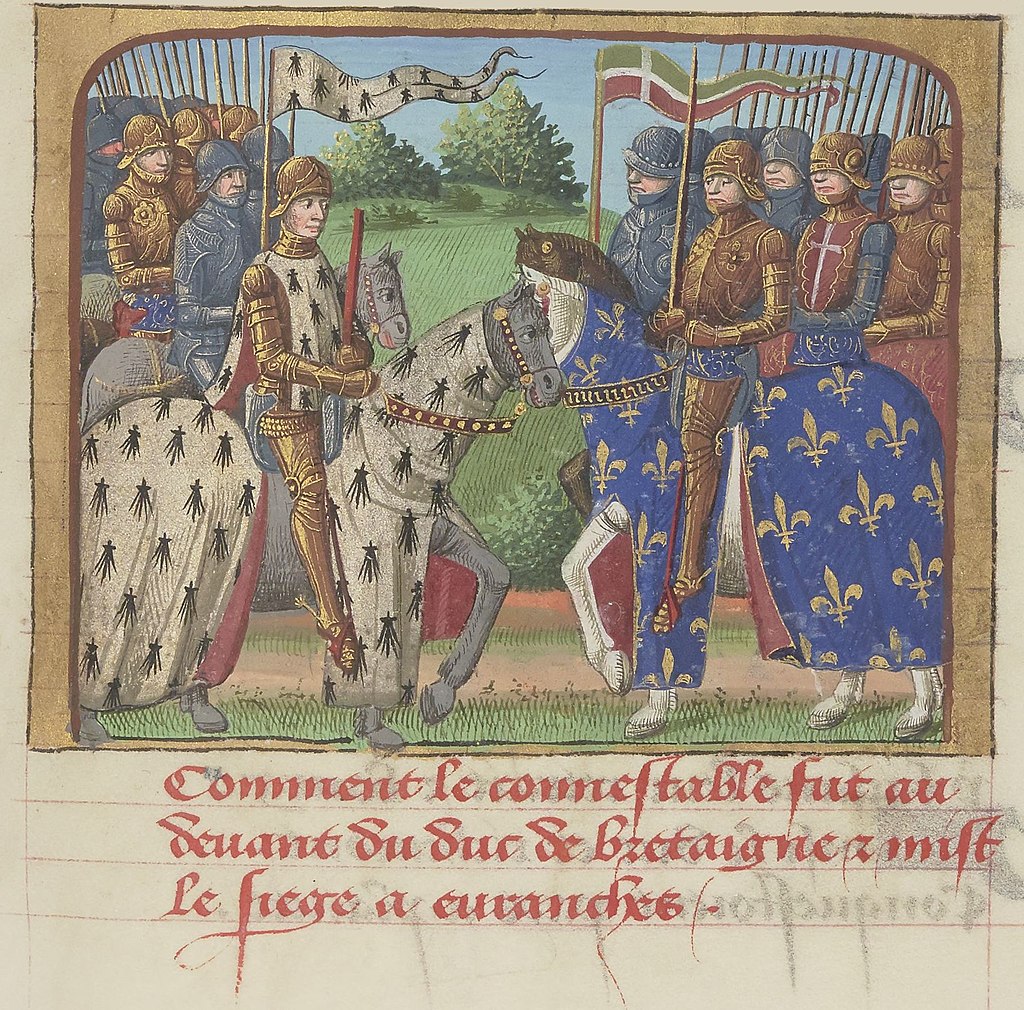 Comment le connestable fut au
deuant du duc de bretaigne & mist
le siege a euranches /.